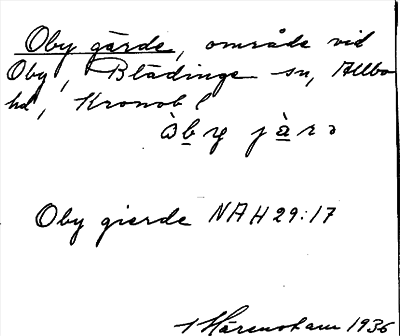 Oby gärde, område vid
Oby, Blädinge sn, Allbo
hd, Kronob l
Oby gierde NAH 29:17
1936